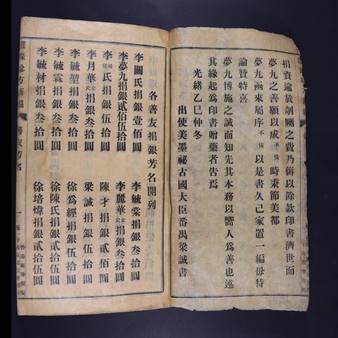 捐資遂放賑關之費乃併以餘款印書濟世而
夢九之善願以成不佞時秉節美都
夢九函來屬序不佞以是書久已家置一編毋待
論贊特喜
夢九博施之誠而知先其本務以嚮人為善也遂
其緣起為印書贈藥者告焉
光緒乙巳仲冬
出使美墨秘古國大臣番禺梁誠書
各善友捐銀芳名開列
李關氏捐銀壹佰圓
李夢九捐銀貳佰伍拾圓
李氏捐銀伍拾圓
李月華女捐銀叁拾圓
李毓堃捐銀叁拾圓
李毓霖捐銀叁拾圓
李毓材捐銀叁拾圓
李毓棠捐銀叁拾圓
李麗華女捐銀叁拾圓
陳才捐銀貳拾圓
梁誠捐銀伍拾圓
徐為經捐銀貳拾圓
徐陳氏捐銀貳拾圓
徐培煒捐銀貳拾伍圓